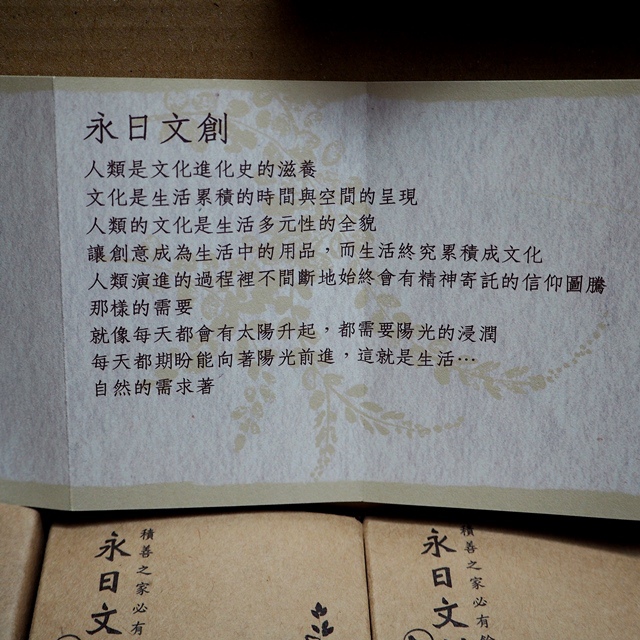 永日文創
人類是文化進化史的滋養
文化是生活累積的時間與空間的呈現
人類的文化是生活多元性的全貌
讓創意成為生活中的用品，而生活終究累積成文化
人類演進的過程裡不間斷地始終會有精神寄託的信仰圖騰
那樣的需要
就像每天都會有太陽升起，都需要陽光的浸潤
每天都期盼能向著陽光前進，這就是生活…
自然的需求著
積善之家必有
永日文
積善之家必有
永日文